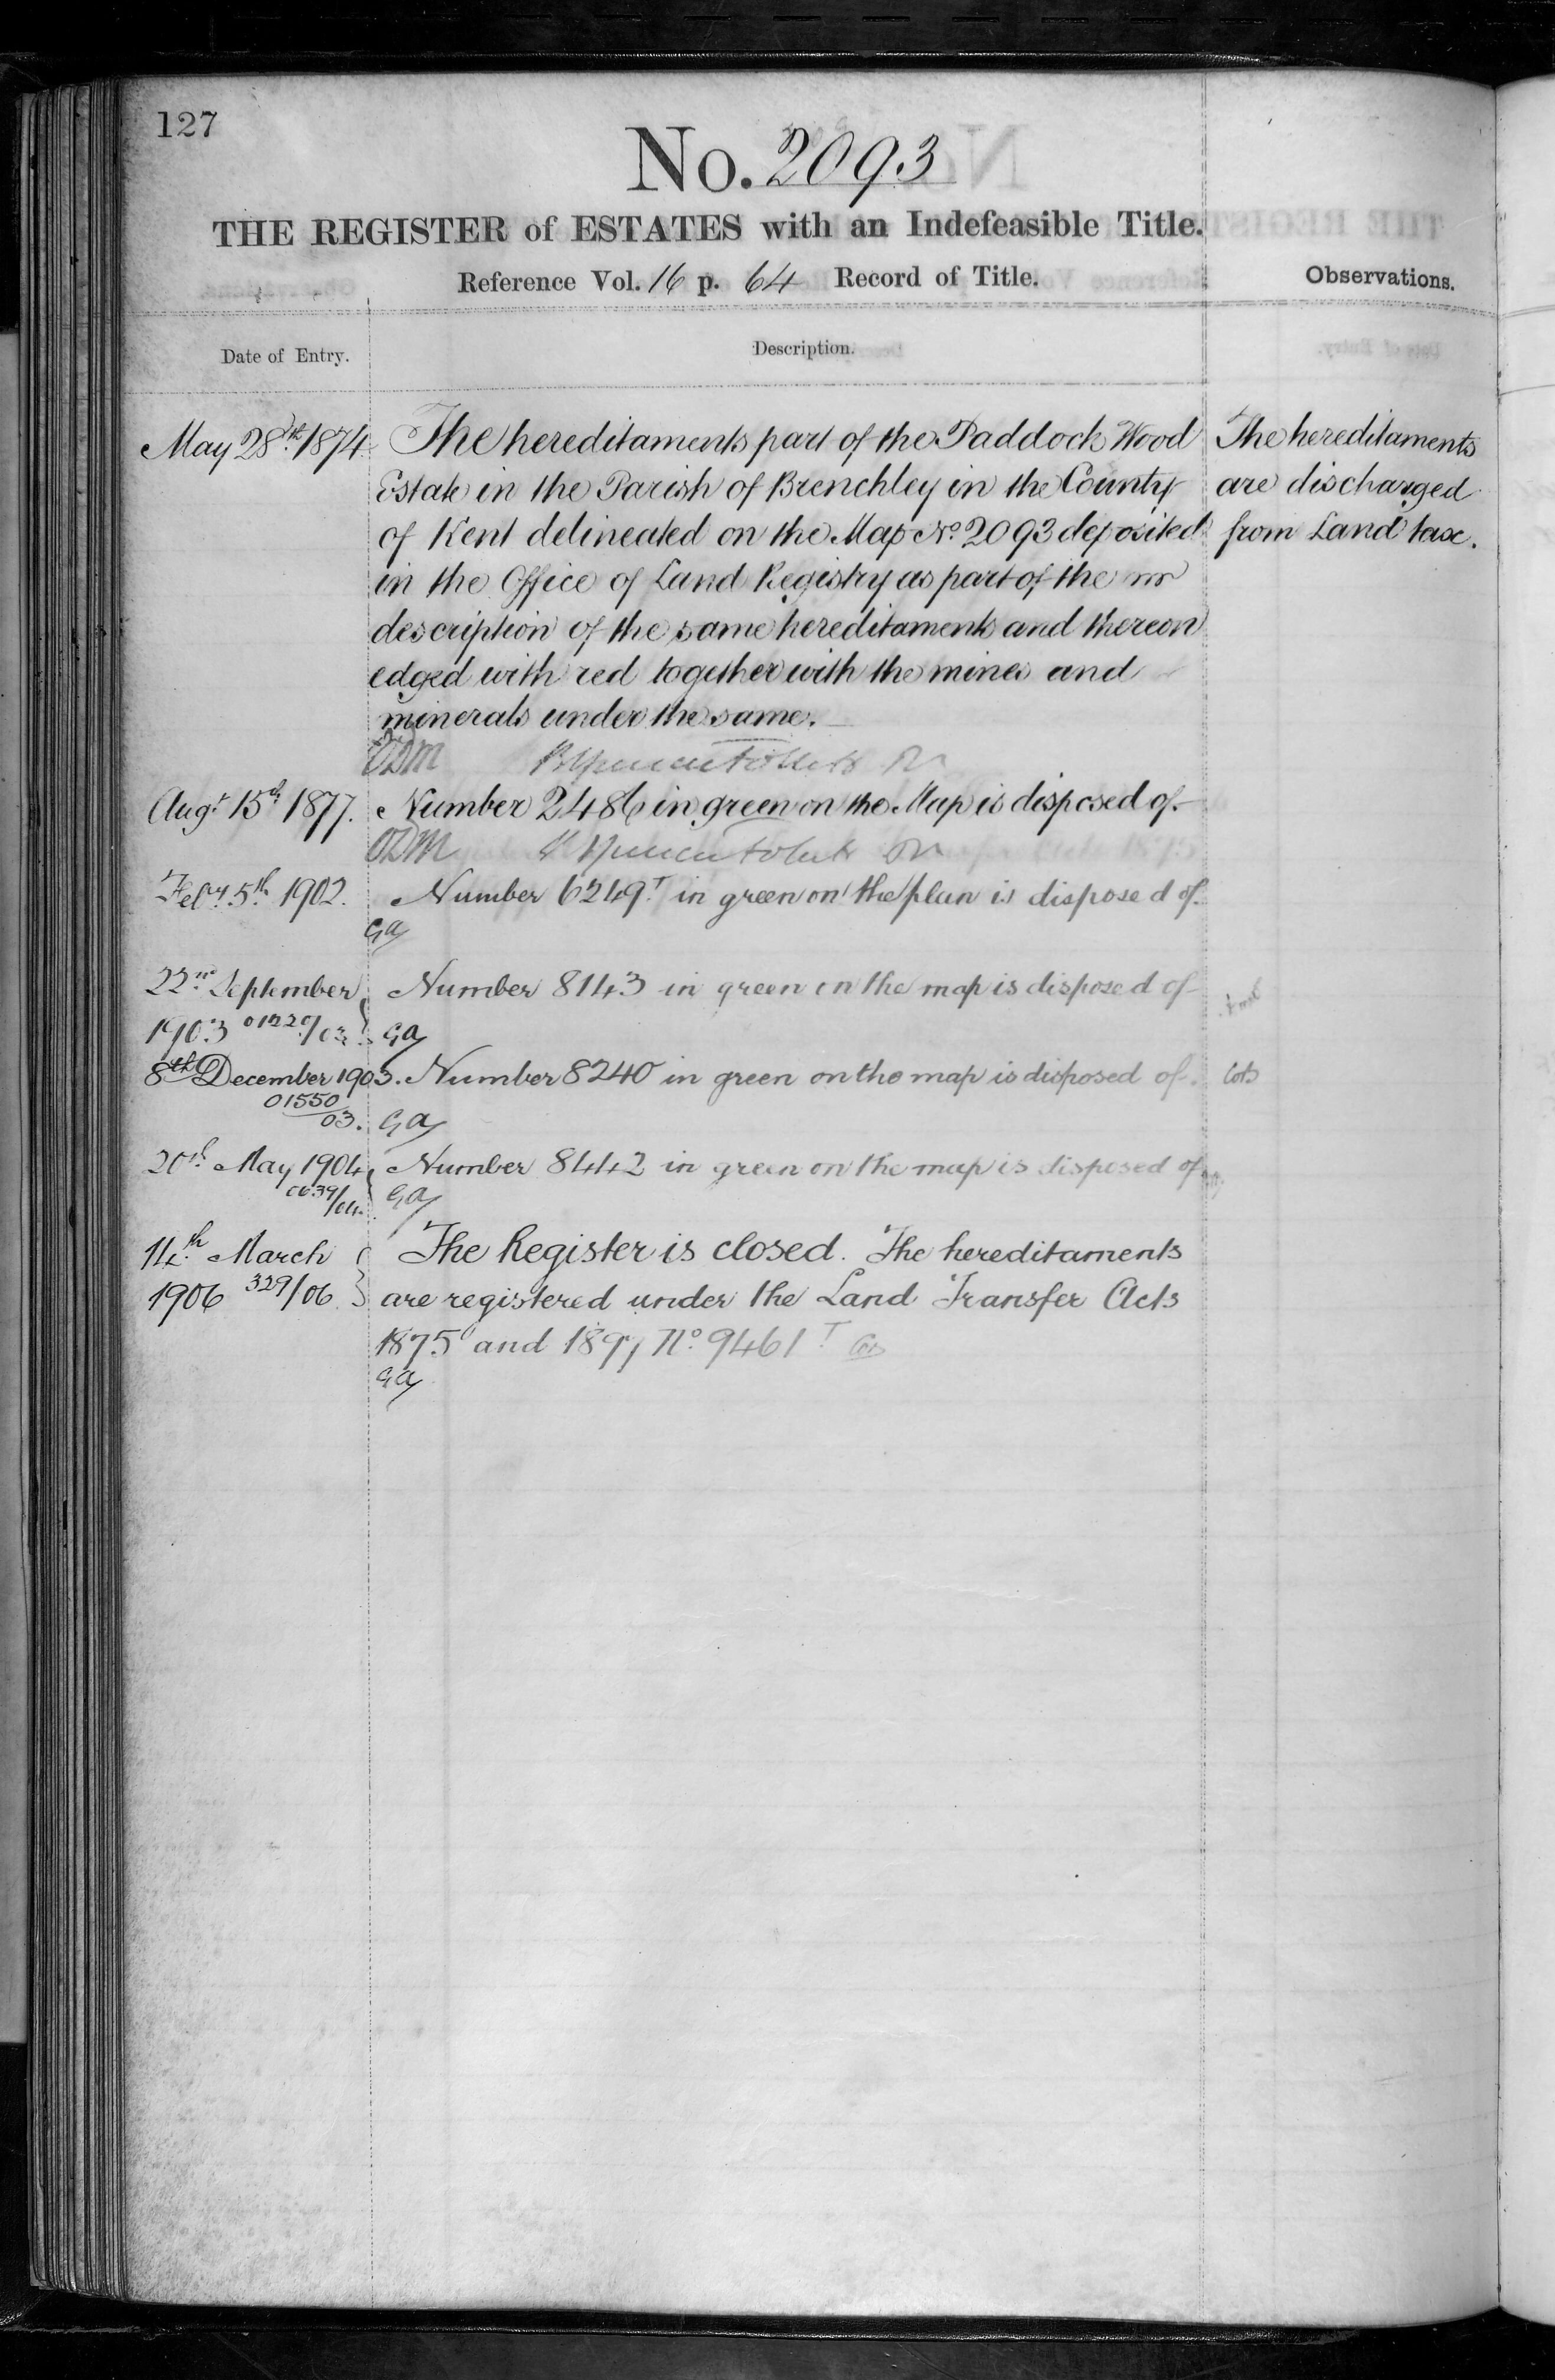 127
No. 2093
THE REGISTER of ESTATES with an Indefeasible Title.
Reference Vol. 16 p. 64 Record of Title.
Observations.
Date of Entry.
Description.
May 28th. 1874 The hereditaments part of the Paddock Wood
Estate in the Parish of Brenchley in the County
of Kent delineated on the Map No. 2093 deposited
in the Office of Land Registry as part of the
description of the same hereditaments and thereon
edged with red together with the mines and
minerals under the same.
The hereditaments
are discharged
from Land tax.
ODM
Augt 15th 1877. Number 2486 in green on the Map is disposed of
ODM
Feby. 5th 1902. Number 6249T in green on the plan is disposed of.
GA
22nd September Number 8143 in green on the map is disposed of
1903 GA
8th December 1903. Number 8240 in green on the map is disposed of.
01550/03. GA
20th May 1904 Number 8442 in green on the map is disposed of
0639/04. GA
14th March The Register is closed. The hereditaments
1906 329/06 are registered under the Land Transfer Acts
1875 and 1897 No. 9461T
GA